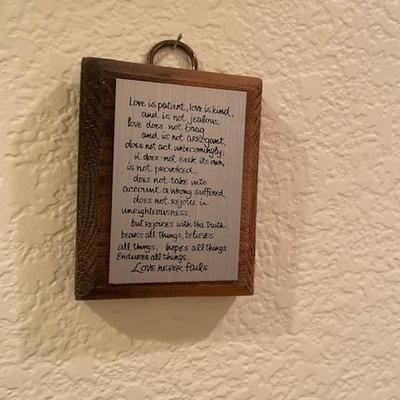 Love is patient, love is kind,
and is not jealous,
love does not brag
and is not arrogant,
does not act unbecomingly;
it does not seek its own,
is not provoked,
does not take into
account a wrong suffered,
does not rejoice in
unrighteousness,
but rejoices with the truth.
bears all things, believes
all things, hopes all things
Endures all things.
Love never fails